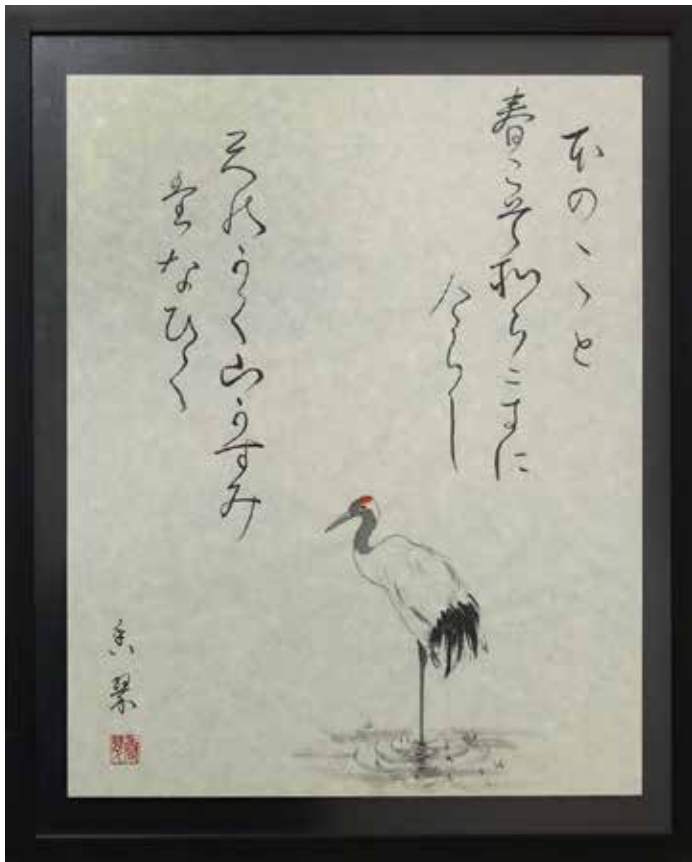 ほのゝゝと
春こそそらにきに
けらし
天のかく山かすみ
たなひく